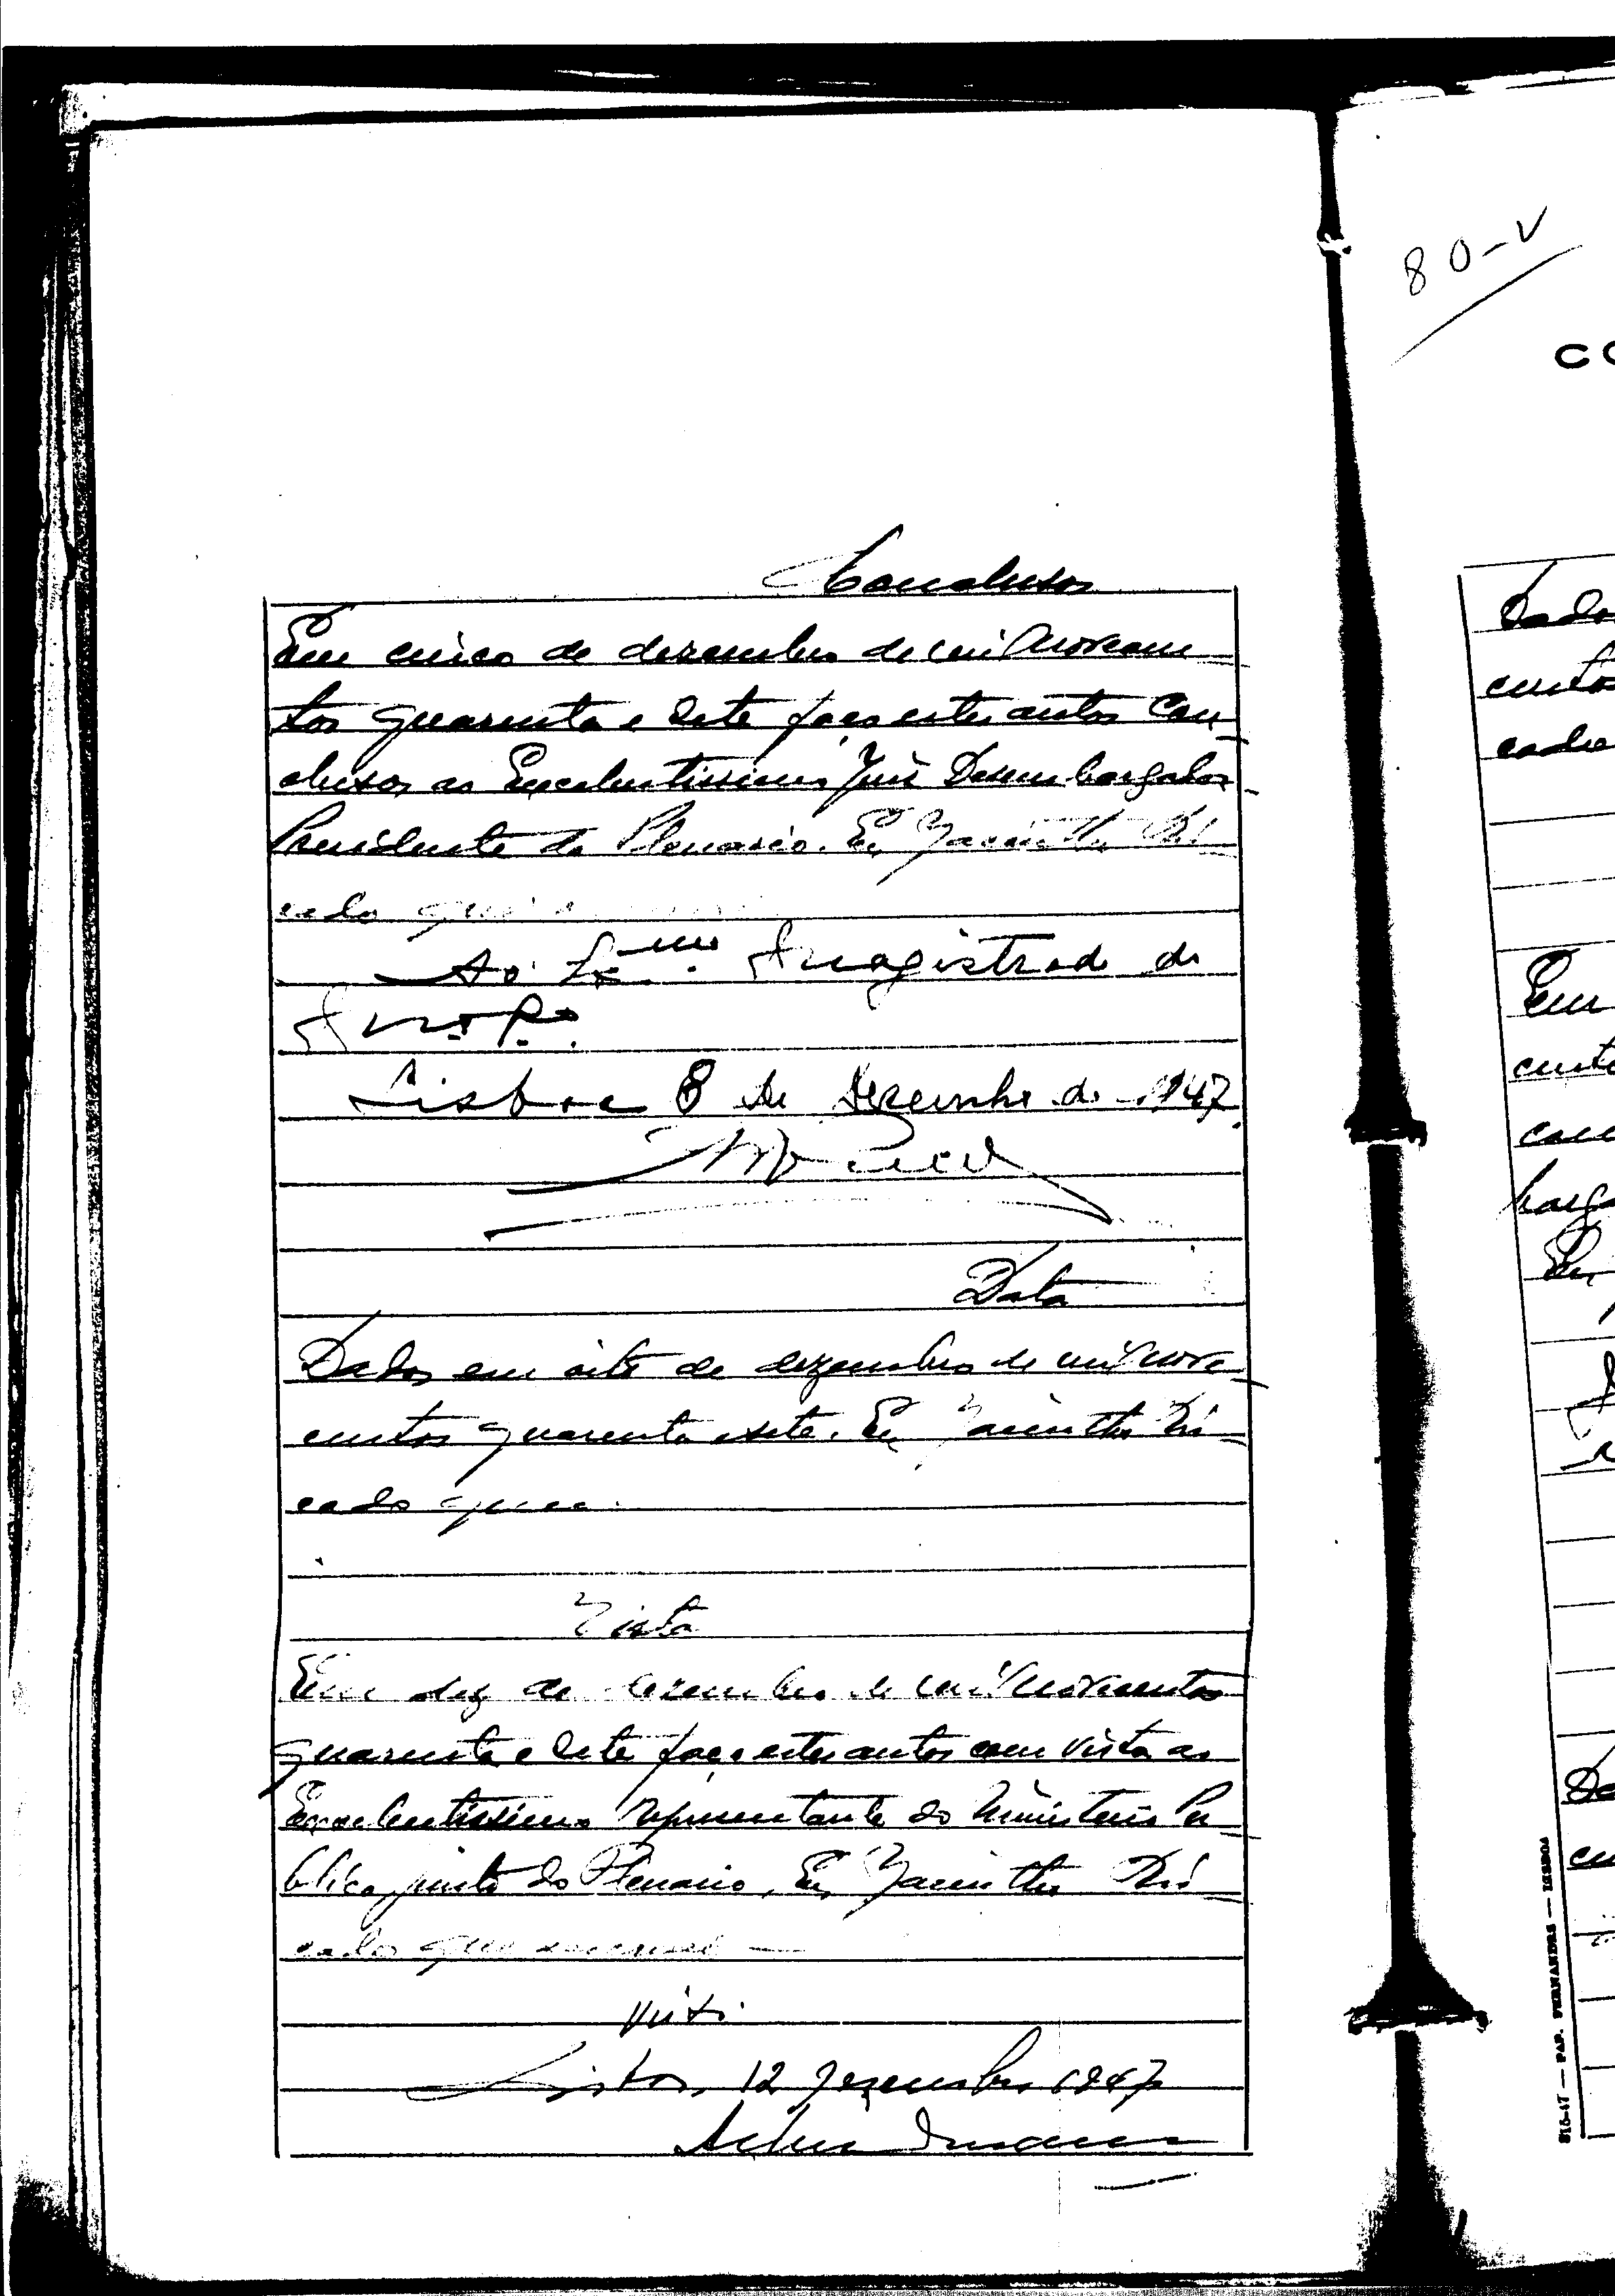 Conclusos
Em cinco de dezembro de mil novecen
tos quarenta e sete faço estes autos con
clusos ao Excelentissimo Juiz Desembargador
Presidente do Plenario. Eu, Jacintho
que
Ao Exmo. Magistrado do
M.º P.º
Lisboa 8 de Dezembro de 1947.
Data
Dados em oito de dezembro de mil nove
centos quarenta e sete. Eu, Jacintho
que
Vista
Em dez de dezembro de mil novecentos
quarenta e sete faço estes autos com vista ao
Excelentissimo representante do Ministerio Pu
blico junto do Plenario. Eu, Jacintho
que
Visto.
Lisboa, 12 Dezembro 1947
80-V
CO
Dado
cento
cado
Em
cento
con
barga
Eu,
Da
ce
816-47 — PAP. FERNANDES — LISBOA